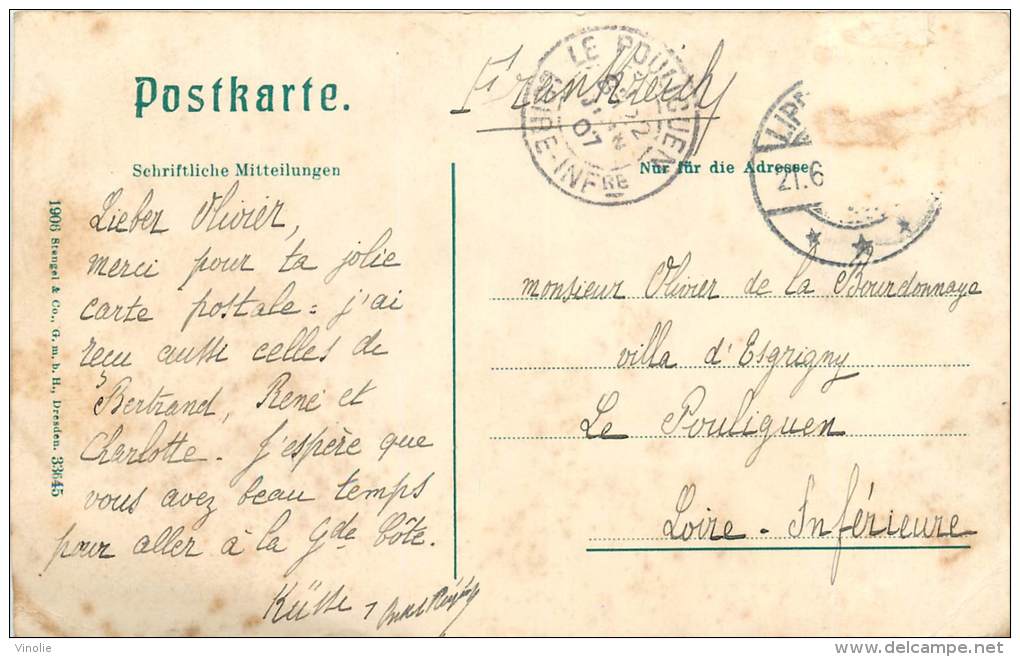 Postkarte.
Frankreich
LE POULIGUEN
LOIRE-INFRE
07
LIPP
21.6
Schriftliche Mitteilungen
Nur für die Adresse
1906 Stengel & Co., G. m. b. H., Dresden. 33645
Lieber Olivier,
merci pour ta jolie
carte postale = j'ai
reçu aussi celles de
Bertrand, René et
Charlotte. J'espère que
vous avez beau temps
pour aller à la Gde Côte.
Küsse
monsieur Olivier de la Bourdonnaye
villa d'Esgrigny
Le Pouliguen
Loire-Inférieure
Vinolie
delcampe.net